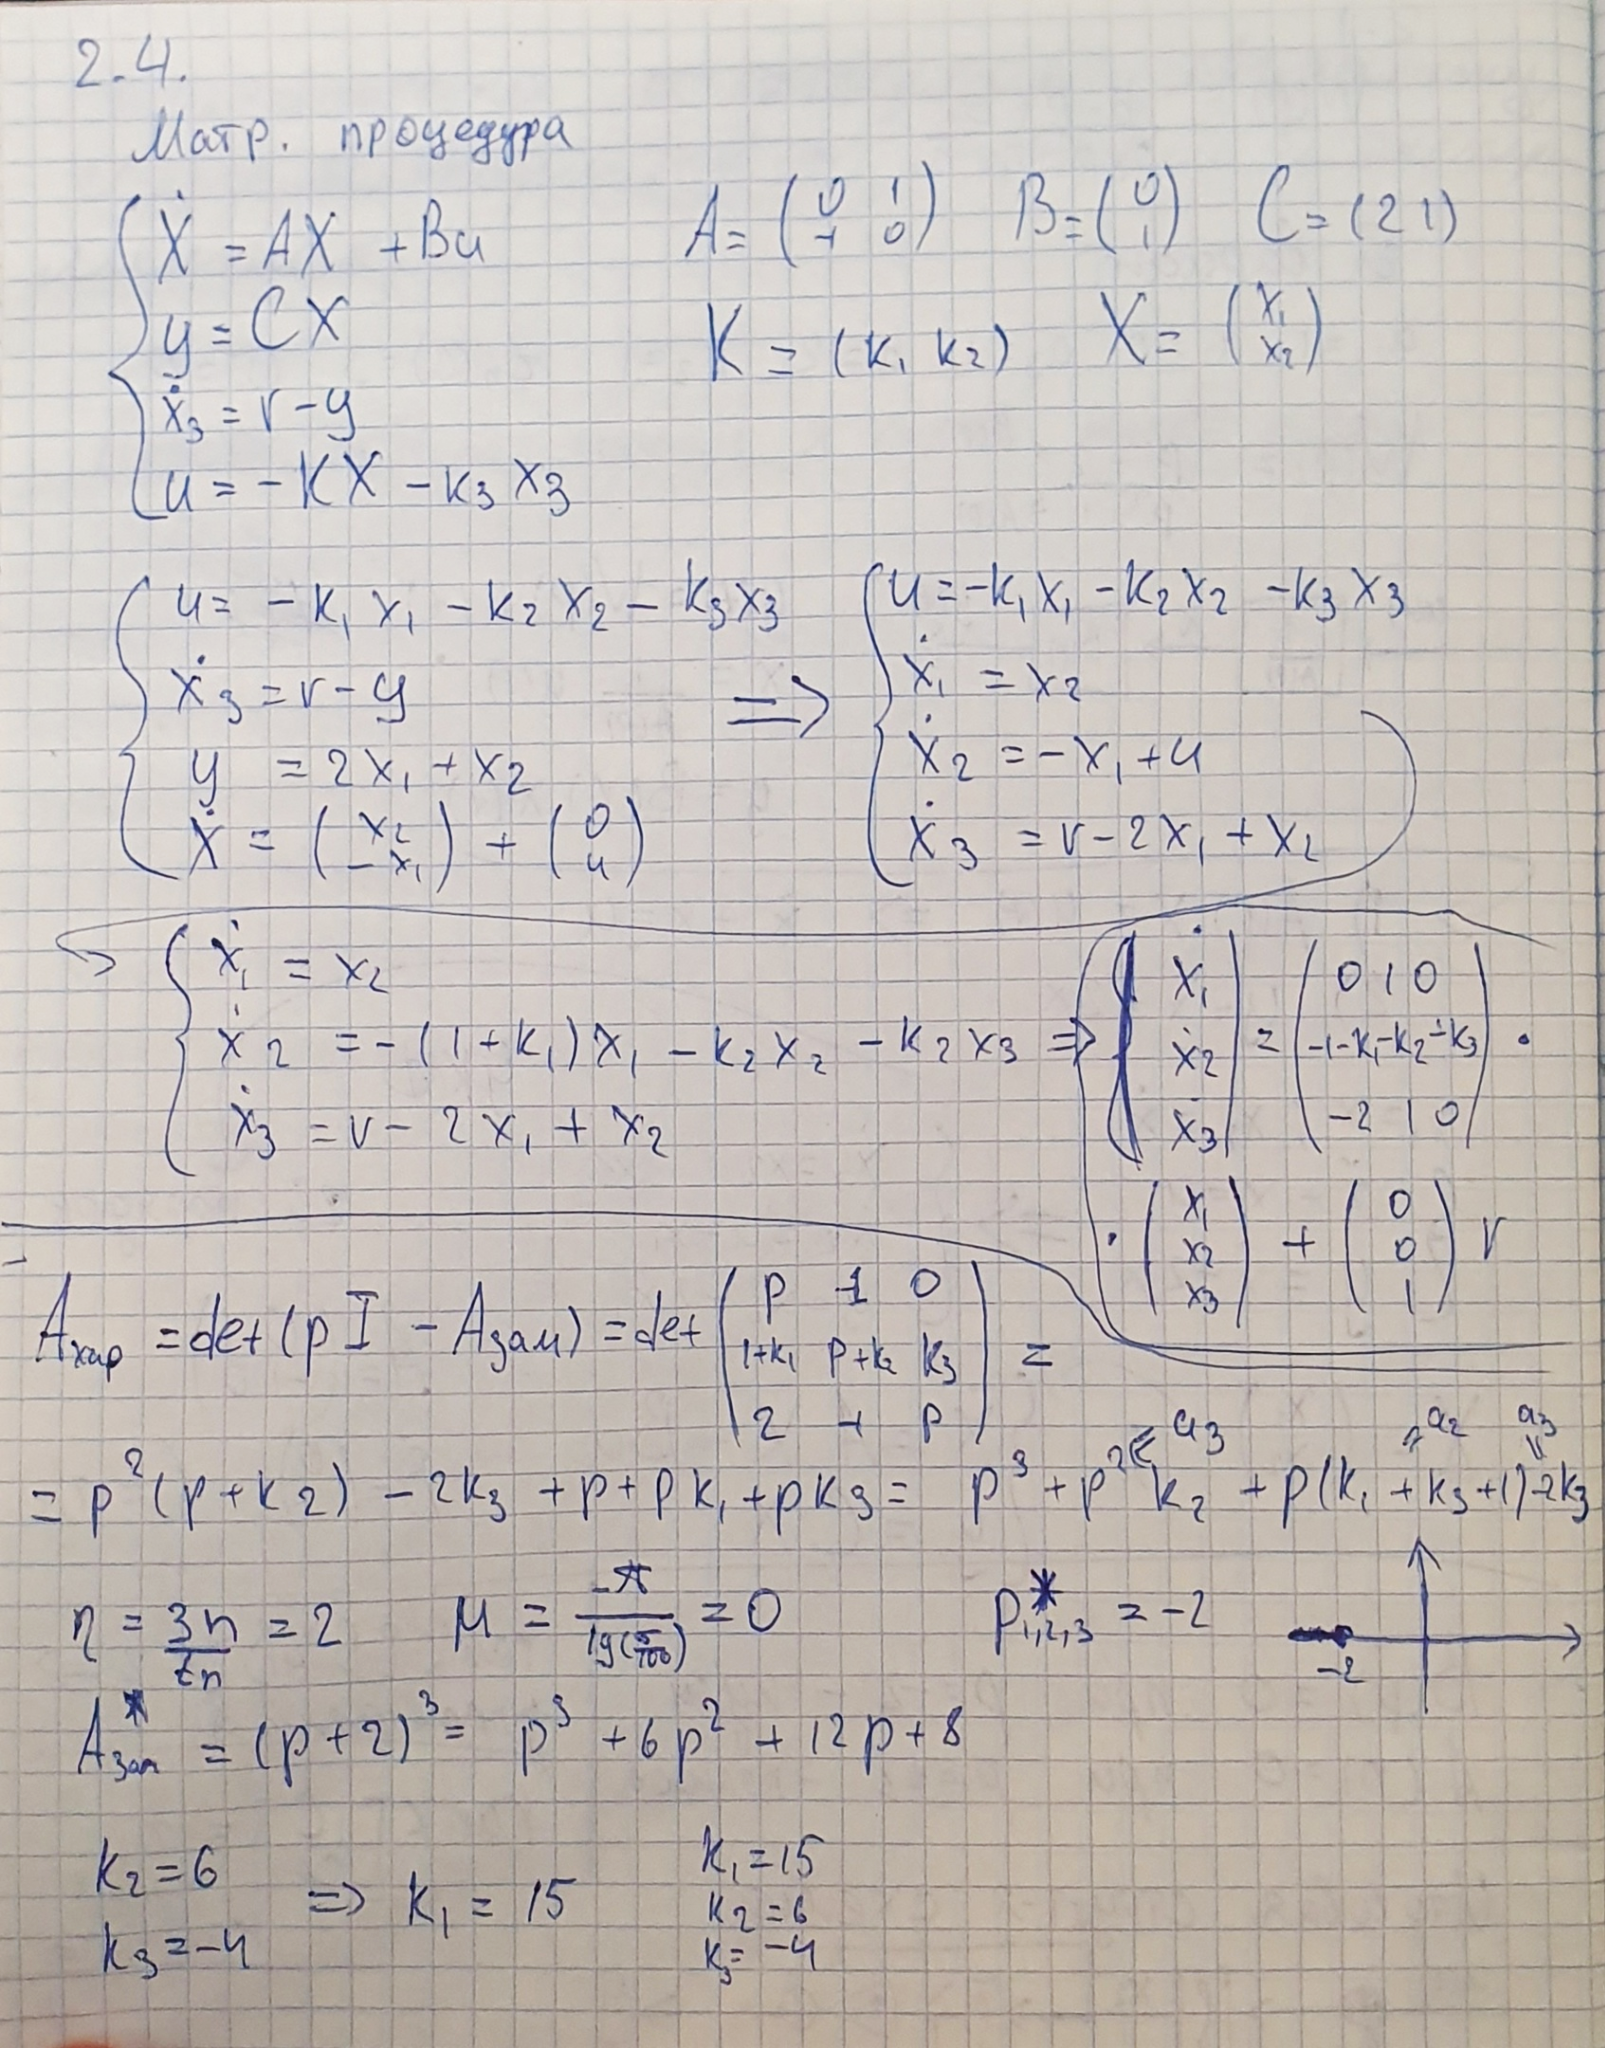 2.4.
Матр. процедура
Ẋ = AX + Bu    A = (0 1; -1 0)    B = (0; 1)    C = (2 1)
y = CX    K = (k₁ k₂)    X = (x₁; x₂)
ẋ₃ = v - y
u = -KX - k₃ x₃
u = -k₁ x₁ - k₂ x₂ - k₃ x₃
ẋ₃ = v - y
y = 2x₁ + x₂
Ẋ = (x₂; -x₁) + (0; u)
⇒
u = -k₁ x₁ - k₂ x₂ - k₃ x₃
ẋ₁ = x₂
ẋ₂ = -x₁ + u
ẋ₃ = v - 2x₁ + x₂
ẋ₁ = x₂
ẋ₂ = -(1 + k₁) x₁ - k₂ x₂ - k₂ x₃ ⇒
ẋ₃ = v - 2x₁ + x₂
(ẋ₁; ẋ₂; ẋ₃) = (0 1 0; -1-k₁ -k₂ -k₃; -2 1 0) ·
· (x₁; x₂; x₃) + (0; 0; 1) v
Aхар = det(pI - Aзам) = det (p -1 0; 1+k₁ p+k₂ k₃; 2 -1 p) =
= p²(p + k₂) - 2k₃ + p + pk₁ + pk₃ = p³ + p² k₂ + p(k₁ + k₃ + 1) - 2k₃
a₃ a₂ a₃
η = 3n/tn = 2    μ = -π/lg(5/100) = 0    p*₁,₂,₃ = -2
-2
A*зам = (p + 2)³ = p³ + 6p² + 12p + 8
k₂ = 6
k₃ = -4
⇒ k₁ = 15
k₁ = 15
k₂ = 6
k₃ = -4